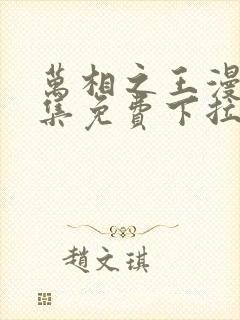 萬相之王漫
集免費下拉
趙文琪